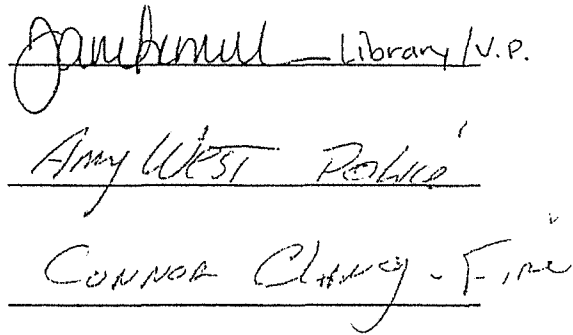 Library/V.P.
Amy West Police
Connor Clancy - Fire